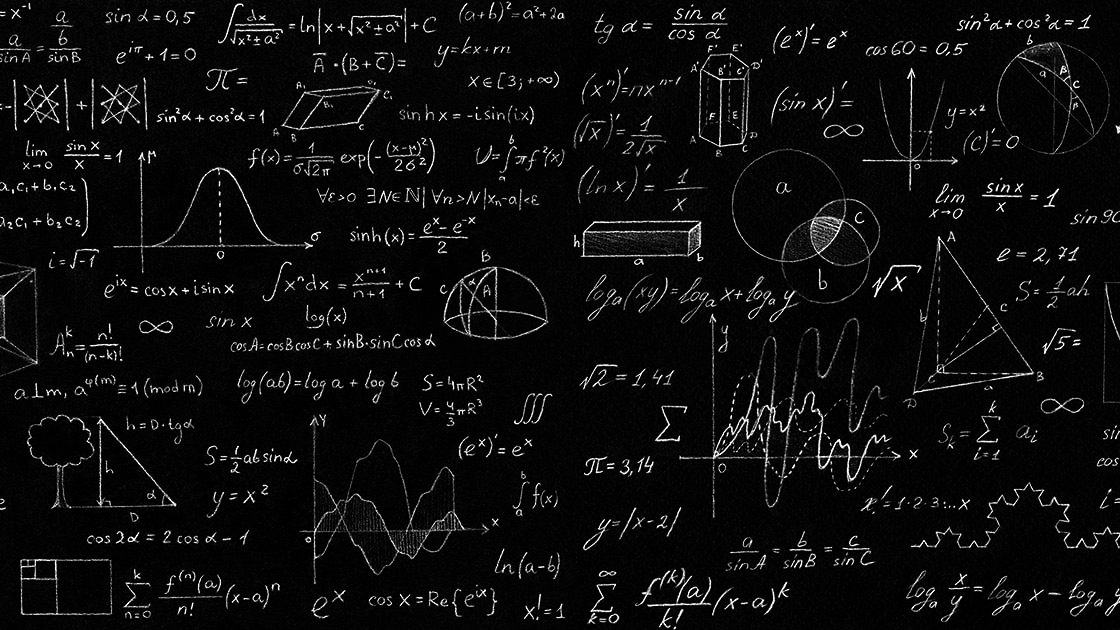 = x⁻¹
a/sinA = b/sinB
a/b
sin α = 0,5
e^(iπ) + 1 = 0
∫ dx/√(x²±a²) = ln|x + √(x²±a²)| + C
(a+b)² = a² + 2a
Π =
A̅ · (B + C) =
y = kx + m
x ∈ [3; +∞)
+
sin²α + cos²α = 1
A₁
C₁
B₁
A
B
C
sinh x = -i sin(ix)
lim x→0 sin x/x = 1
f(x) = 1/(σ√2π) exp(-(x-μ)²/2σ²)
U = ∫ₐᵇ πf²(x)
a₁c₁ + b₁c₂
a₂c₁ + b₂c₂
μ
σ
0
∀ε>0 ∃N∈ℕ| ∀n>N |xₙ-a|<ε
sinh(x) = (eˣ - e⁻ˣ)/2
i = √-1
e^(ix) = cos x + i sin x
∫xⁿdx = xⁿ⁺¹/(n+1) + C
B
C
α
A
Aₙᵏ = n!/(n-k)!
∞
sin x
log(x)
cos A = cos B cos C + sin B · sin C cos α
a⊥m, a^φ(m) ≡ 1 (mod m)
log(ab) = log a + log b
S = 4πR²
V = 4/3 πR³
∫∫∫
h = D · tg α
h
α
D
S = 1/2 ab sin α
y = x²
Y
x
0
(eˣ)' = eˣ
∫ₐᵇ f(x)
cos 2α = 2 cos α - 1
∑ₙ₌₀ᵏ f⁽ⁿ⁾(a)/n! (x-a)ⁿ
eˣ
cos x = Re{e^(ix)}
ln(a-b)
x! = 1
tg α = sin α/cos α
(eˣ)' = eˣ
sin²α + cos²α = 1
cos 60 = 0,5
(xⁿ)' = nxⁿ⁻¹
A' F' E' D' B' C'
F E
A B C D
(sin x)' =
∞
y = x²
(C)' = 0
0
b
a
B
C
(√x)' = 1/2√x
(ln x)' = 1/x
a
c
b
lim x→0 sin x/x = 1
sin 90
h
a
b
√x
e = 2,71
S = 1/2 ah
A
b
C
B
a
D
logₐ(xy) = logₐ x + logₐ y
√5 =
√2 = 1,41
y
x
0
∑
Π = 3,14
∞
Sₖ = ∑ᵢ₌₁ᵏ aᵢ
sin
cos
y = |x-2|
x! = 1·2·3·...·x
i =
a/sin A = b/sin B = c/sin C
∑ₖ₌₀^∞ f⁽ᵏ⁾(a)/k! (x-a)ᵏ
logₐ x/y = logₐ x - logₐ y